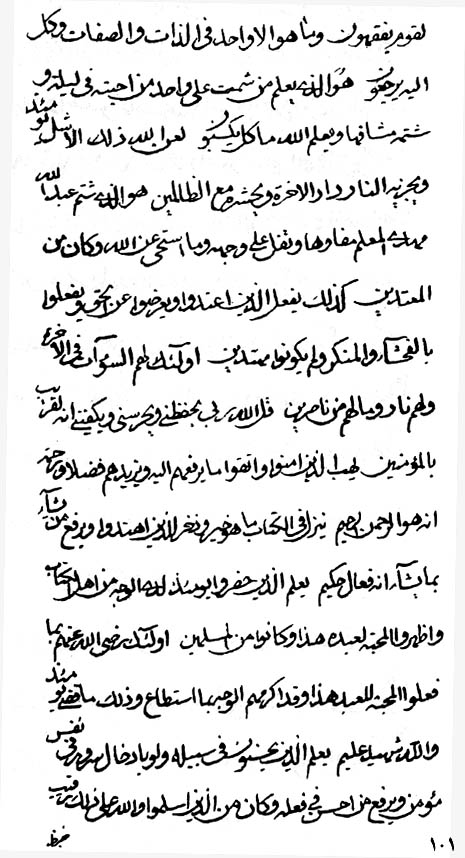 لقوم يفقهون وما هو الا واحد في الذات والصفات وكل
اليه يرجعون هو الذي يعلم من شمت على واحد من احبته في ليلة و
شتمه مشافها ويعلم الله ما كل يكسبون لعن الله ذلك الاشل يومئذ
ويجزيه النار دار الاخرة ويحشره مع الظالمين هو الذي شتم عبد الله
مهدي المعلم مفاوها وتفل على وجهه وما استحى عن الله وكان من
المعتدين كذلك يفعل الذين اعتدوا ويعرضوا عن الحق ويفعلوا
بالفحشاء والمنكر ولم يكونوا مهتدين اولئك لهم السوآت في الاخرة
ولهم نار وما لهم من ناصرين قل الله ربي يحفظني ويحرسني ويكفيني انه لقريب
بالمؤمنين يهب الذين امنوا واتقوا ما يرفعهم اليه ويزيدهم فضلا ورحمة
انه هو الرحمن الرحيم نزل في الكتاب ما هو خير وذخر للذين اهتدوا ويرفع من يشاء
بما يشاء انه فعال حكيم يعلم الذين حضروا يومئذ لله الوجه من اهل الكتاب
واظهروا المحبة لعبده هذا وكانوا من المسلمين اولئك رضي الله عنهم بما
فعلوا المحبة للعبد هذا وقد اكرمهم الوجيه بما استطاع وذلك ما قضي يومئذ
والله شهيد عليم يعلم الذين يحسنون في سبيله ولو بادخال سرور في نفس
مؤمن ويرفع من احسن في فعله وكان من الذين اسلموا والله على ذلك رقيب
حفيظ
١٠١